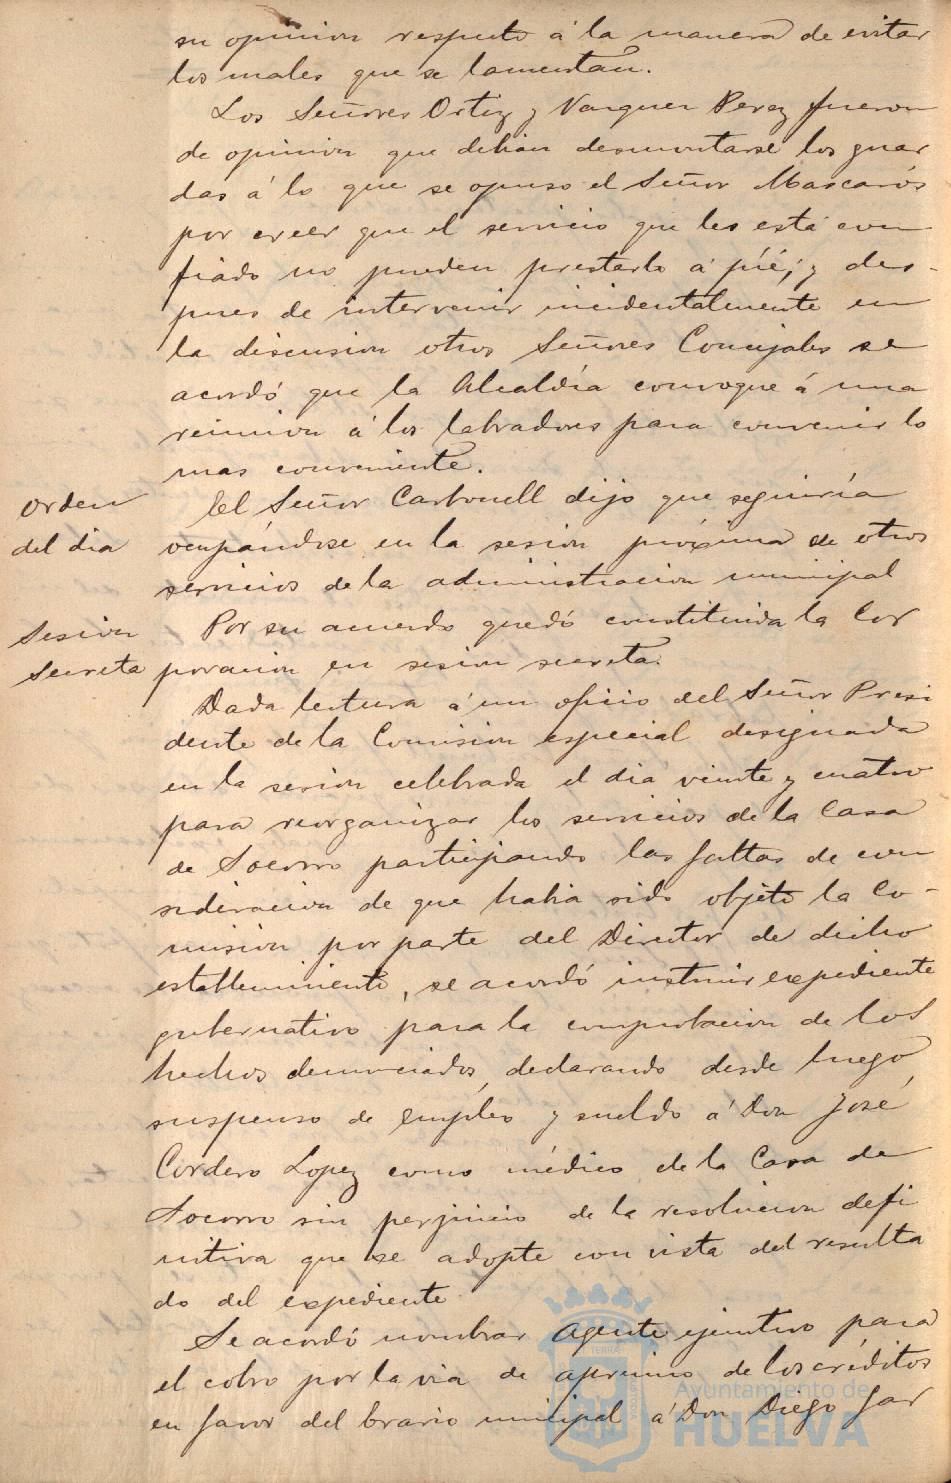 su opinion respecto á la manera de evitar
los males que se lamentan.
Los Señores Ortiz y Vazquez Perez fueron
de opinion que debian desmontarse los guar
das á lo que se opuso el Señor Mascarós
por creer que el servicio que les está con
fiado no pueden prestarlo á pié; y des-
pues de intervenir incidentalmente en
la discusion otros Señores Concejales se
acordó que la Alcaldía convoque á una
reunion á los labradores para convenir lo
mas conveniente.
Orden
del dia
El Señor Carbonell dijo que seguiría
ocupándose en la sesion próxima de otros
servicios de la administracion municipal
Sesion
Secreta
Por su acuerdo quedó constituida la Cor
poracion en sesion secreta.
Dada lectura á un oficio del Señor Presi
dente de la Comision especial designada
en la sesion celebrada el dia veinte y cuatro
para reorganizar los servicios de la Casa
de Socorro participando las faltas de con
sideracion de que habia sido objeto la Co-
mision por parte del Director de dicho
establecimiento, se acordó instruir expediente
gubernativo para la comprobacion de los
hechos denunciados, declarando desde luego
suspenso de empleo y sueldo á Don José
Cordero Lopez como médico de la Casa de
Socorro sin perjuicio de la resolucion defi
nitiva que se adopte con vista del resulta
do del expediente
Se acordó nombrar Agente ejecutivo para
el cobro por la via de apremio de los créditos
en favor del Erario municipal á Don Diego Gar
Ayuntamiento de
HUELVA